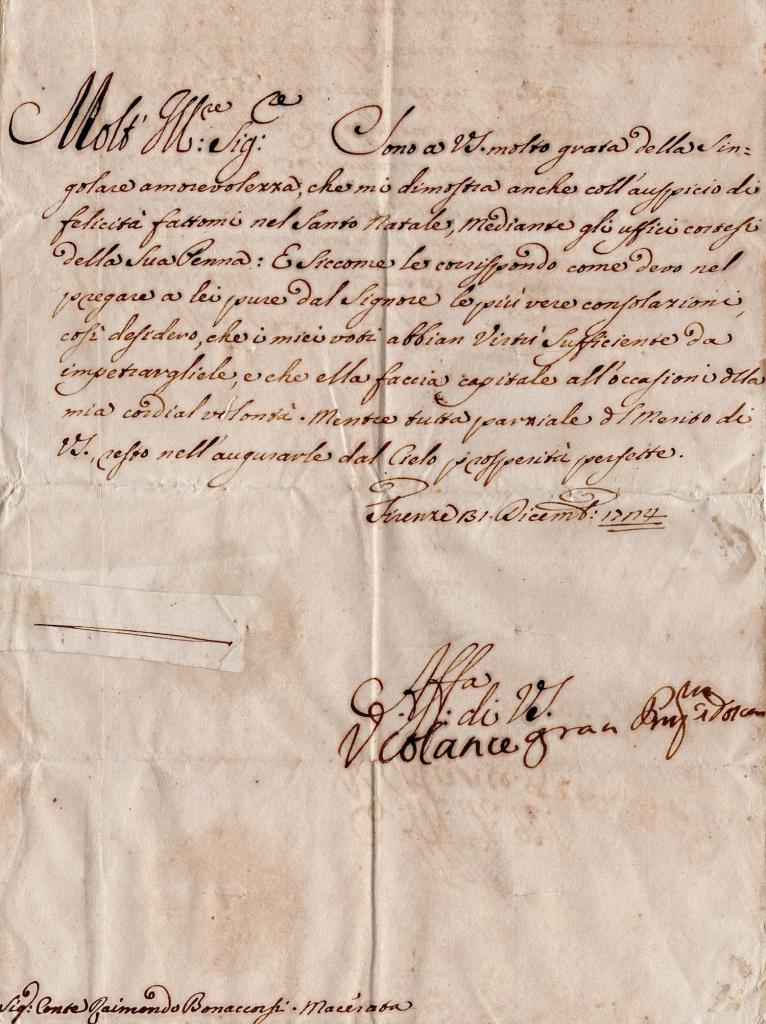 Molt' Ill:re Sig:re Sono a VS. molto grata della Sin=
golare amorevolezza, che mi dimostra anche coll'auspicio di
felicità fattomi nel Santo Natale, Mediante gli uffici cortesi
della Sua Penna: E Siccome le corrispondo come devo nel
pregare a lei pure dal Signore le più vere consolazioni,
così desidero, che i miei voti abbian Virtù Sufficiente da
impetrargliele, e che ella faccia capitale all'occasioni della
mia cordial volontà. Mentre tutta parziale del Merito di
VS., resto nell'augurarle dal Cielo prosperità perfette.
Firenze 31. Dicemb: 1714
Affa
di VS.
Violante gran
Sig: Conte Raimondo Bonaccorsi. Macerata